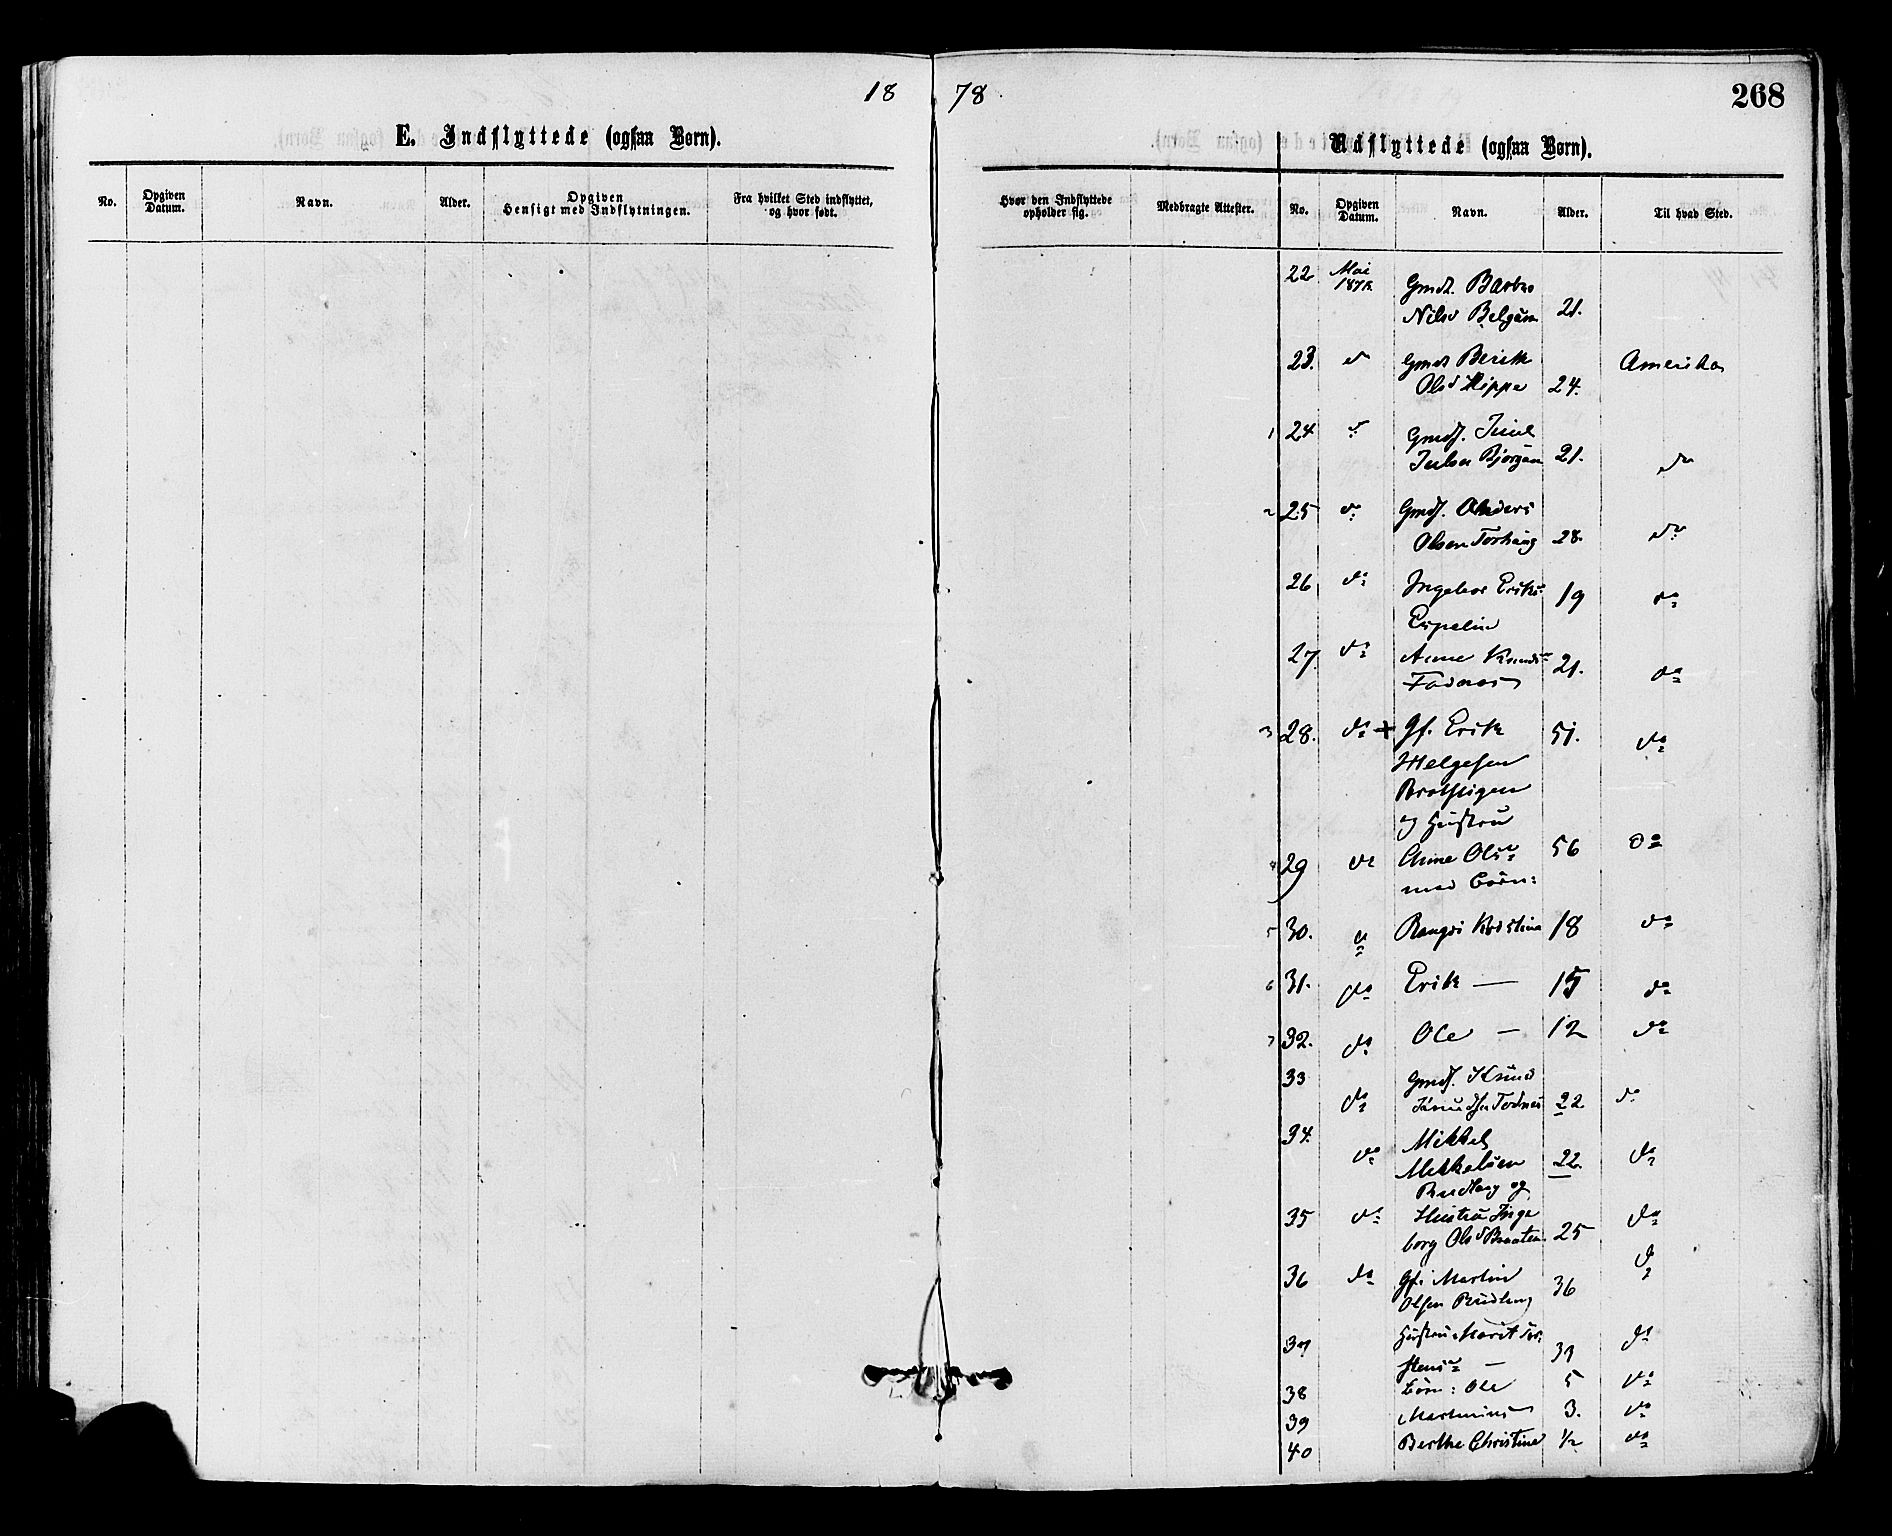 18 78
268
E. Indflyttede (ogsaa Børn).
Udflyttede (ogsaa Børn).
No. Opgiven Datum. Navn. Alder. Opgiven Hensigt med Indflytningen. Fra hvilket Sted indflyttet, og hvor født.
Hvor den Indflyttede opholder sig. Medbragte Attester. No. Opgiven Datum. Navn. Alder. Til hvad Sted.
22 Mai 1878 Gmdt. Barbro
Nilsd 21.
23. do Gmdt Berith Amerika
Olsd 24.
1 24 do Gmds. Juul
Julsen Bjørgan 21. do
2 25 do Gmds. Anders
Olsen 28. do
26 do Ingebor Eriks 19 do
Espelin
27. do Anne Knudsd 21. do
3 28. do + Gf. Erik 51. do
Helgesen
og Hustru
29 do Olsd 56 do
med Børn:
5 30. do Rangri Kristine 18 do
6 31. do Erik — 15 do
7 32. do Ole — 12 do
33 do Gmds. Knud
Knudsen 22 do
34. do Mikkel
Mikkelsen 22. do
og
35 do Hustru Inge do
borg Olsd Braaten 25
36 do Gf. Martin 36 do
Olsen
37 Hustru Marit Tor: do
stensd —
38 Børn: Ole 5 do
39 Martinius 3. do
40 Berthe Christine ½ do